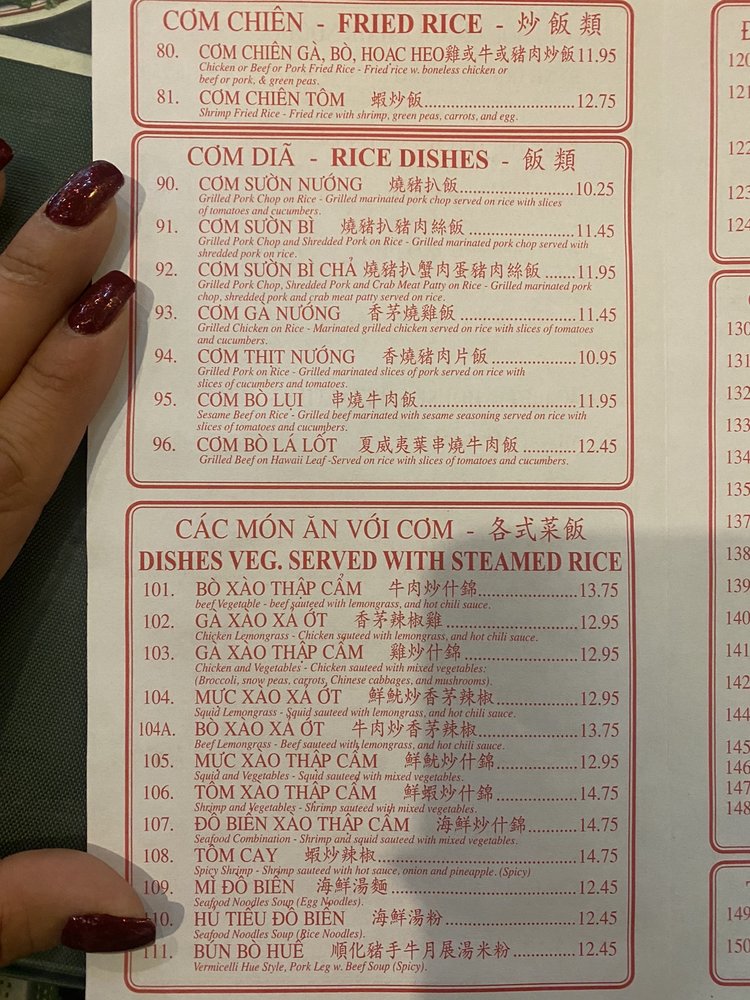 CƠM CHIÊN - FRIED RICE - 炒飯類
80. CƠM CHIÊN GÀ, BÒ, HOAC HEO雞或牛或豬肉炒飯11.95
Chicken or Beef or Pork Fried Rice - Fried rice w. boneless chicken or
beef or pork, & green peas.
81. CƠM CHIÊN TÔM 蝦炒飯..............................12.75
Shrimp Fried Rice - Fried rice with shrimp, green peas, carrots, and egg.
CƠM DIÃ - RICE DISHES - 飯類
90. CƠM SƯỜN NƯỚNG 燒豬扒飯.......................10.25
Grilled Pork Chop on Rice - Grilled marinated pork chop served on rice with slices
of tomatoes and cucumbers.
91. CƠM SƯỜN BÌ 燒豬扒豬肉絲飯.....................11.45
Grilled Pork Chop and Shredded Pork on Rice - Grilled marinated pork chop served with
shredded pork on rice.
92. CƠM SƯỜN BÌ CHẢ 燒豬扒蟹肉蛋豬肉絲飯.......11.95
Grilled Pork Chop, Shredded Pork and Crab Meat Patty on Rice - Grilled marinated pork
chop, shredded pork and crab meat patty served on rice.
93. CƠM GÀ NƯỚNG 香茅燒雞飯........................11.45
Grilled Chicken on Rice - Marinated grilled chicken served on rice with slices of tomatoes
and cucumbers.
94. CƠM THỊT NƯỚNG 香燒豬肉片飯.................10.95
Grilled Pork on Rice - Grilled marinated slices of pork served on rice with
slices of cucumbers and tomatoes.
95. CƠM BÒ LỤI 串燒牛肉飯................................11.95
Sesame Beef on Rice - Grilled beef marinated with sesame seasoning served on rice with
slices of tomatoes and cucumbers.
96. CƠM BÒ LÁ LỐT 夏威夷葉串燒牛肉飯............12.45
Grilled Beef on Hawaii Leaf -Served on rice with slices of tomatoes and cucumbers.
CÁC MÓN ĂN VỚI CƠM - 各式菜飯
DISHES VEG. SERVED WITH STEAMED RICE
101. BÒ XÀO THẬP CẨM 牛肉炒什錦....................13.75
beef Vegetable - beef sauteed with lemongrass, and hot chili sauce.
102. GÀ XÀO XẢ ỚT 香茅辣椒雞...........................12.95
Chicken Lemongrass - Chicken sauteed with lemongrass, and hot chili sauce.
103. GÀ XÀO THẬP CẨM 雞炒什錦.......................12.95
Chicken and Vegetables - Chicken sauteed with mixed vegetables:
(Broccoli, snow peas, carrots, Chinese cabbages, and mushrooms).
104. MỰC XÀO XẢ ỚT 鮮魷炒香茅辣椒.................12.95
Squid Lemongrass - Squid sauteed with lemongrass, and hot chili sauce.
104A. BÒ XÀO XẢ ỚT 牛肉炒香茅辣椒....................13.75
Beef Lemongrass - Beef sauteed with lemongrass, and hot chili sauce.
105. MỰC XÀO THẬP CẨM 鮮魷炒什錦................12.95
Squid and Vegetables - Squid sauteed with mixed vegetables.
106. TÔM XÀO THẬP CẨM 鮮蝦炒什錦.................14.75
Shrimp and Vegetables - Shrimp sauteed with mixed vegetables.
107. ĐỒ BIỂN XÀO THẬP CẨM 海鮮炒什錦..........14.75
Seafood Combination - Shrimp and squid sauteed with mixed vegetables.
108. TÔM CAY 蝦炒辣椒........................................14.75
Spicy Shrimp - Shrimp sauteed with hot sauce, onion and pineapple. (Spicy)
109. MÌ ĐỒ BIỂN 海鮮湯麵.....................................12.45
Seafood Noodles Soup (Egg Noodles).
110. HỦ TIẾU ĐỒ BIỂN 海鮮湯粉...........................12.45
Seafood Noodles Soup (Rice Noodles).
111. BÚN BÒ HUẾ 順化豬手牛月展湯米粉..............12.45
Vermicelli Hue Style, Pork Leg w. Beef Soup (Spicy).
120
121
122
123
124
130
131
132
133
134
135
137
138
139
140
141
142
144
145
146
147
148
149
150